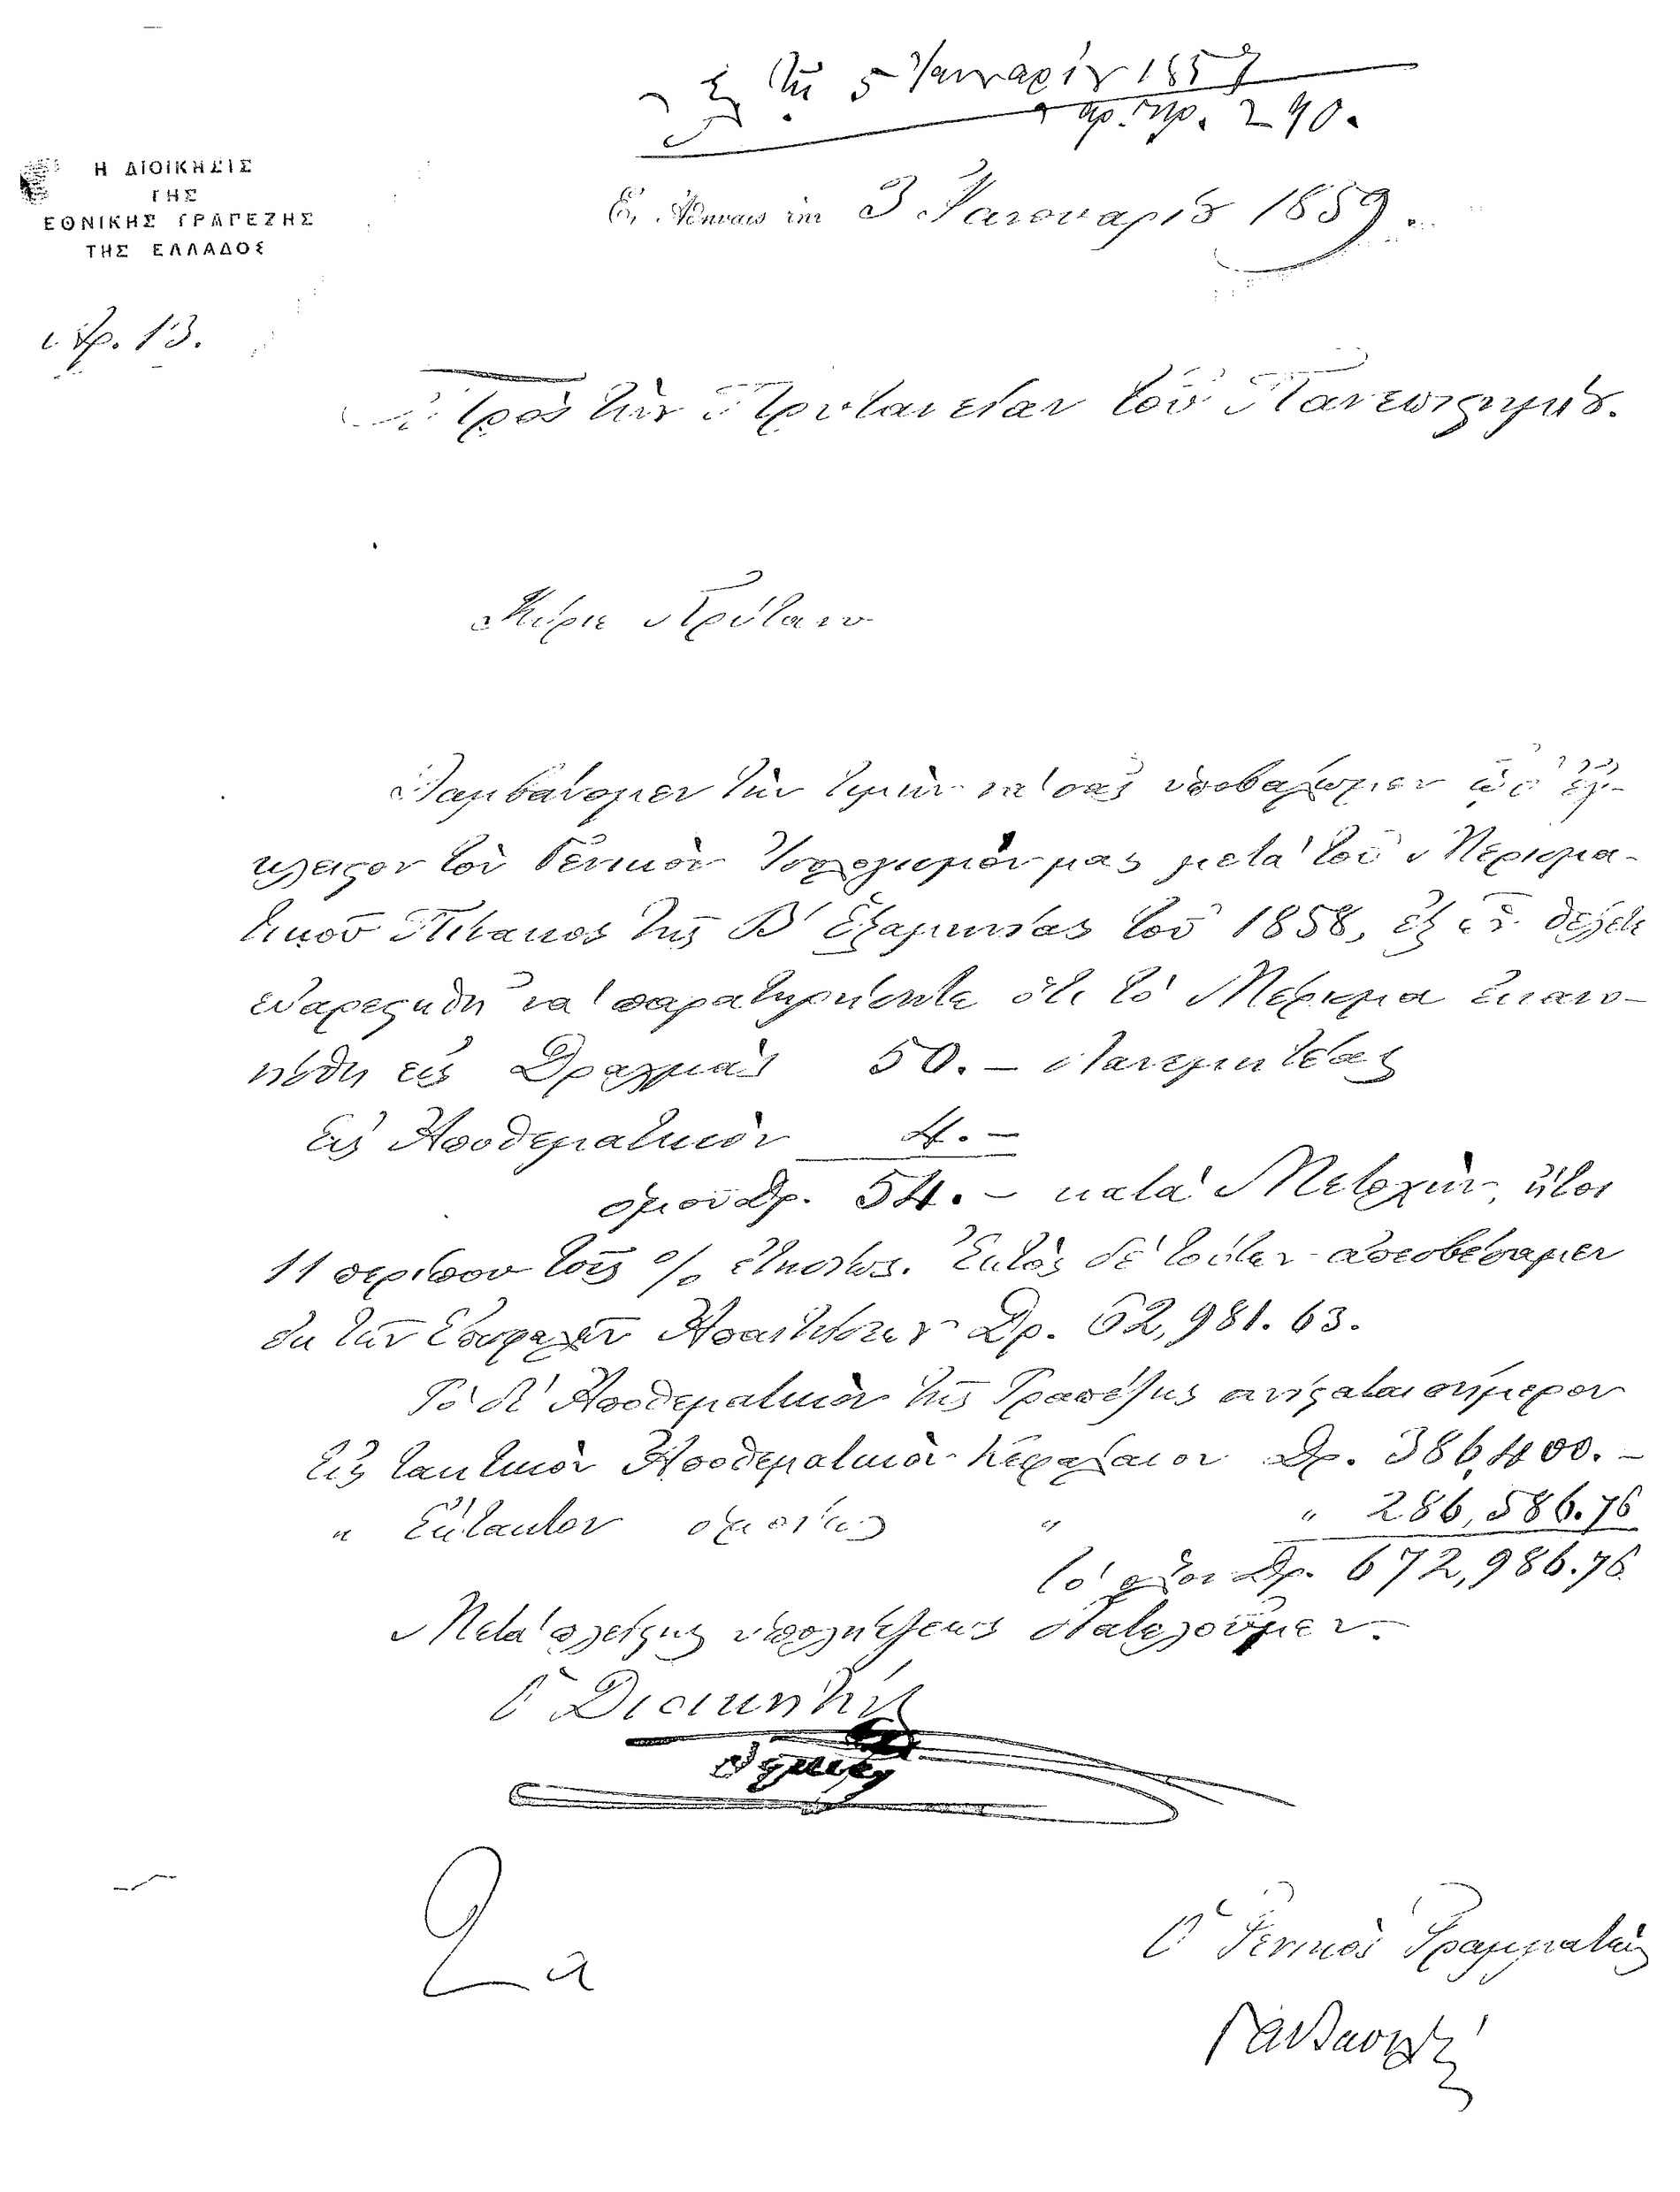 τῇ 5 Ἰανναρίȣ 1859
ἀρ. πρ. 290.
Η ΔΙΟΙΚΗΣΙΣ
ΤΗΣ
ΕΘΝΙΚΗΣ ΤΡΑΠΕΖΗΣ
ΤΗΣ ΕΛΛΑΔΟΣ
Ἐν Ἀθήναις τῇ 3 Ἰανουαρίȣ 1859.
Ἀρ. 13.
Πρὸς τὴν Πρυτανείαν τοῦ Πανεπιϛημίȣ.
Κύριε Πρύτανι
Λαμβάνομεν τὴν τιμὴν νὰ σᾶς ὑποβάλωμεν ὧδε ἔγ-
κλειϛον τὸν Γενικὸν Ἰσολογισμόν μας μετὰ τοῦ Μερισμα-
τικοῦ Πίνακος τῆς Β' Ἑξαμηνίας τοῦ 1858, ἐξ ὧν θέλετε
εὐαρεϛηθῆ νὰ παρατηρήσητε ὅτι τὸ Μέρισμα ἐκανο-
νίσθη εἰς Δραχμὰς 50.- διανεμητέας
Εἰς Ἀποθεματικὸν 4.-
ὁμοῦ Δρ. 54.- κατὰ Μετοχὴν, ἤτοι
11 περίπου τοῖς % ἐτησίως. Ἐκτὸς δὲ τούτων ἀπεσβέσαμεν
ἐκ τῶν Ἐπισφαλῶν Ἀπαιτήσεων Δρ. 62,981.63.
Τὸ δ' Ἀποθεματικὸν τῆς Τραπέζης ἀνίϛαται σήμερον
Εἰς τακτικὸν Ἀποθεματικὸν Κεφάλαιον Δρ. 386,400.-
" Ἔκτακτον ὁμοίως " " 286,586.76
τὸ ὅλον Δρ. 672,986.76
Μετὰ πλείϛης ὑπολήψεως διατελοῦμεν.
Ὁ Διοικητὴς
Ὁ Γενικὸς Γραμματεὺς